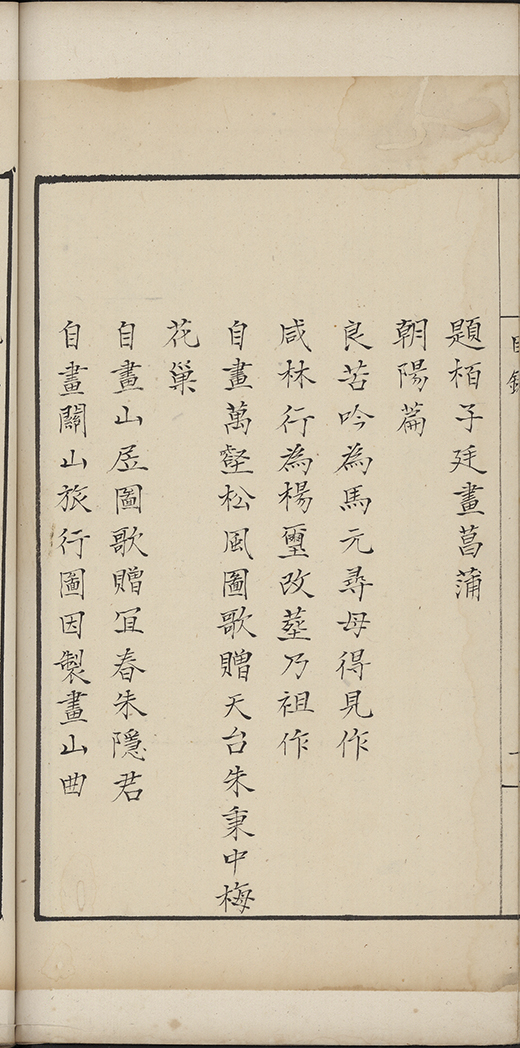 目錄
題栢子廷畫菖蒲
朝陽篇
良苦吟為馬元尋母得見作
咸林行為楊璽改塟乃祖作
自畫萬壑松風圖歌贈天台朱秉中梅
花巢
自畫山居圖歌贈宜春朱隱君
自畫關山旅行圖因製畫山曲